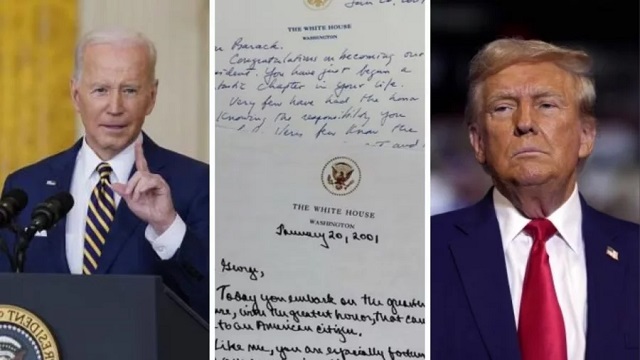 Jan 20
THE WHITE HOUSE
WASHINGTON
Barack,
Congratulations on becoming our
sident. You have just begun a
tastic chapter in your life.
Very few have had the honor
knowing the responsibility you
Very few know the
t and
THE WHITE HOUSE
WASHINGTON
January 20, 2001
George,
Today you embark on the greates
ure, with the greatest honor, that can
to an American citizen.
Like me, you are especially fortun
PRESIDENT